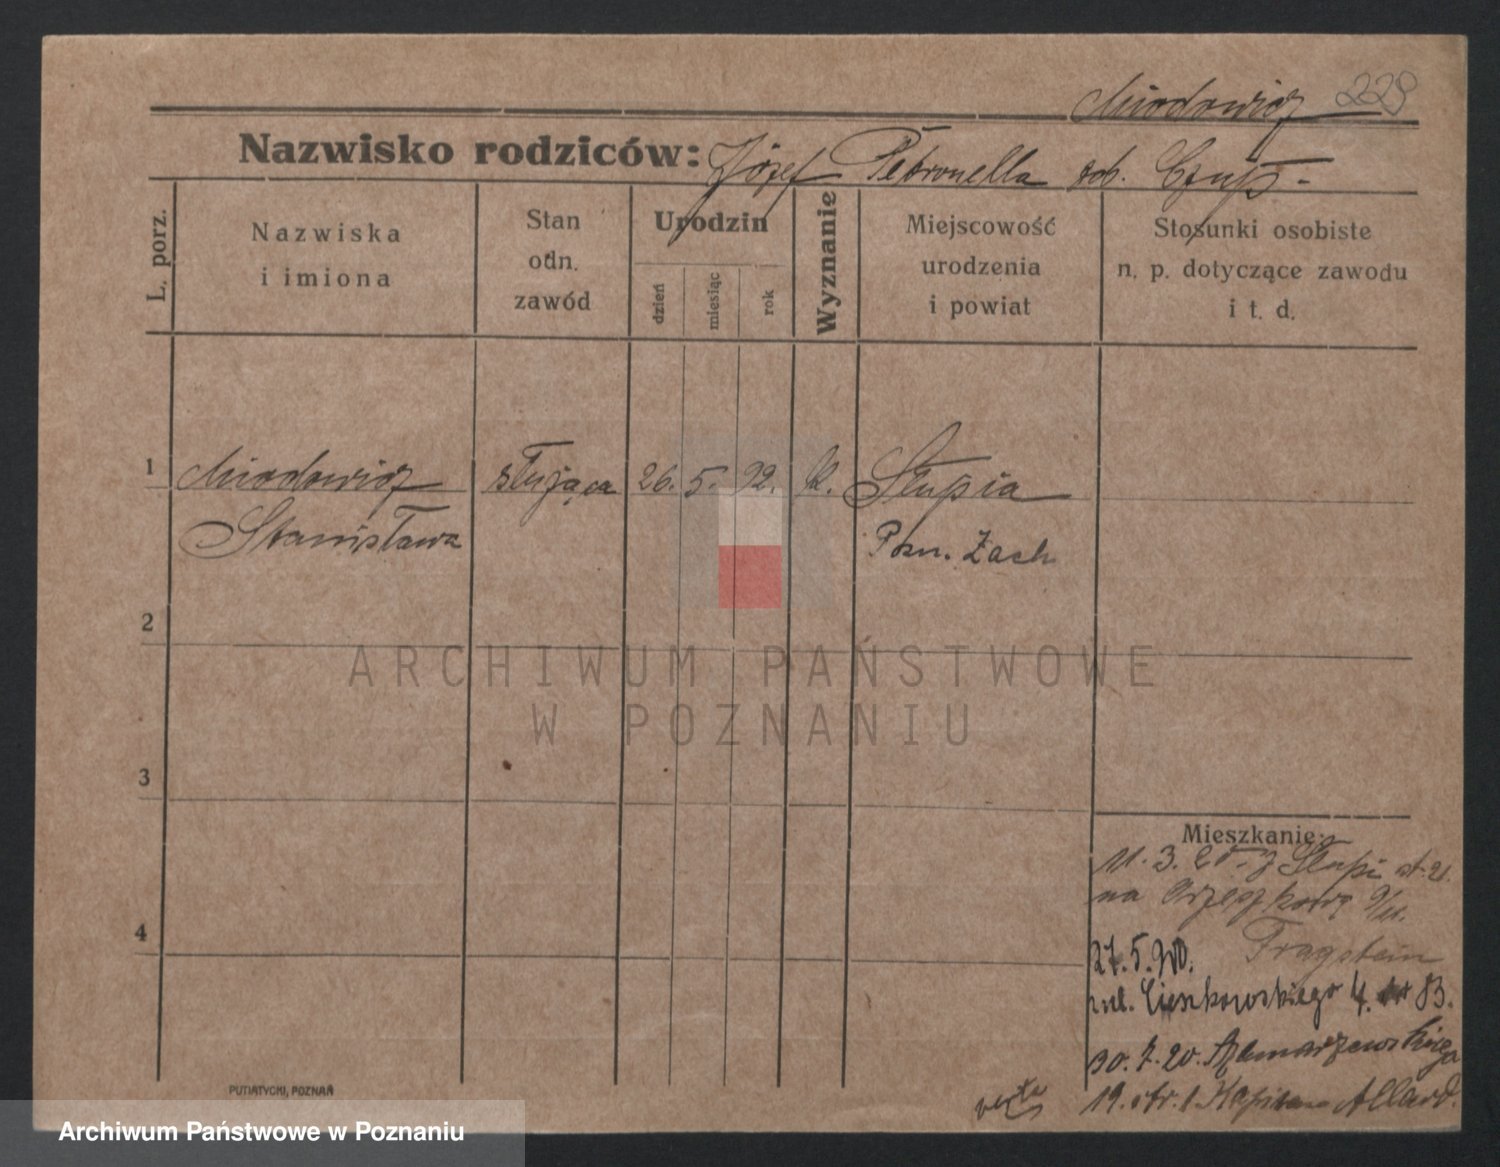 Miodowicz 229
Nazwisko rodziców: Józef Petronella rob. Czupś -
L. porz.
Nazwiska i imiona
Stan odn. zawód
Urodzin
dzień
miesiąc
rok
Wyznanie
Miejscowość urodzenia i powiat
Stosunki osobiste n. p. dotyczące zawodu i t. d.
1 Miodowicz służąca 26. 5. 92. k. Słupia
Stanisława Pozn. Zach
2
3
4
Mieszkanie:
11. 3. 20. z Słupi
na
27. 5. 20. Fragstein
Cieszkowskiego 4. 83.
30. 7. 20. Szamarzewskiego
19. Kapitan Allard.
verte
PUTIATYCKI, POZNAŃ
ARCHIWUM PAŃSTWOWE
W POZNANIU
Archiwum Państwowe w Poznaniu